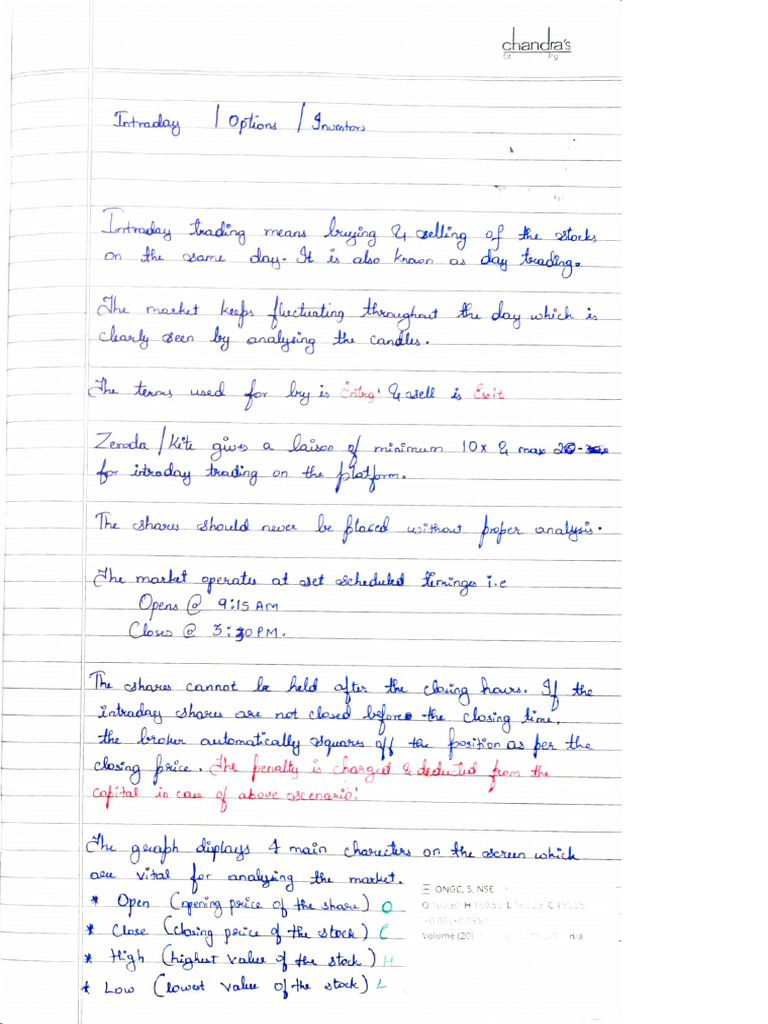 chandra's
Dt Pg
Intraday / Options / Investors
Intraday trading means buying & selling of the stocks
on the same day. It is also known as day trading.
The market keeps fluctuating throughout the day which is
clearly seen by analysing the candles.
The terms used for buy is Entry & sell is Exit
Zeroda/Kite gives a laison of minimum 10x & max 20
for intraday trading on the platform.
The shares should never be placed without proper analysis.
The market operates at set scheduled timings i.e
Opens @ 9:15 AM
Closes @ 3:30 PM.
The shares cannot be held after the closing hours. If the
intraday shares are not closed before the closing time,
the broker automatically squares off the position as per the
closing price. The penalty is charged & deducted from the
capital in case of above scenario.
The graph displays 4 main charecters on the screen which
are vital for analysing the market.
* Open (opening price of the share) O
* Close (closing price of the stock) C
* High (highest value of the stock) H
* Low (lowest value of the stock) L
ONGC, 5, NSE
Volume (20) n/a